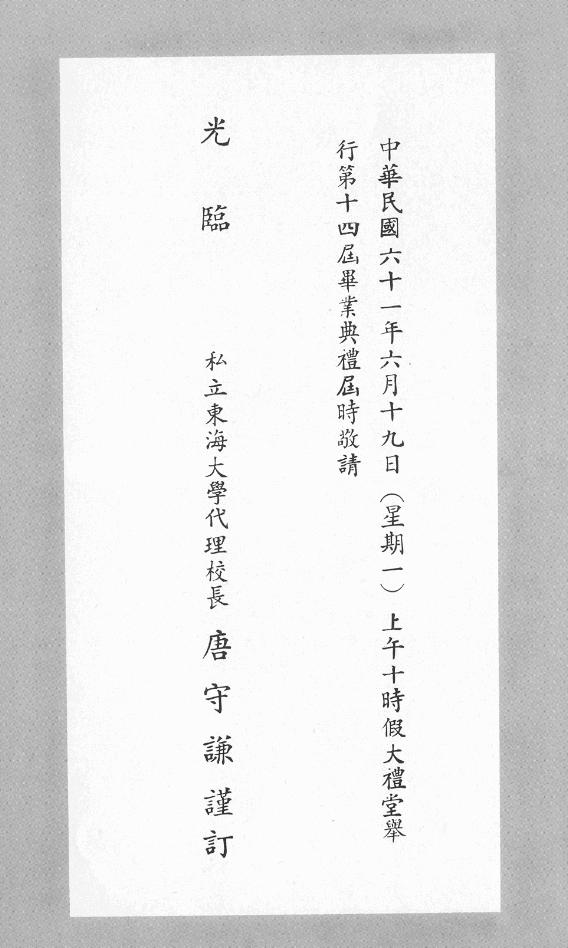 中華民國六十一年六月十九日（星期一）上午十時假大禮堂舉
行第十四屆畢業典禮屆時敬請
光臨
私立東海大學代理校長 唐守謙謹訂